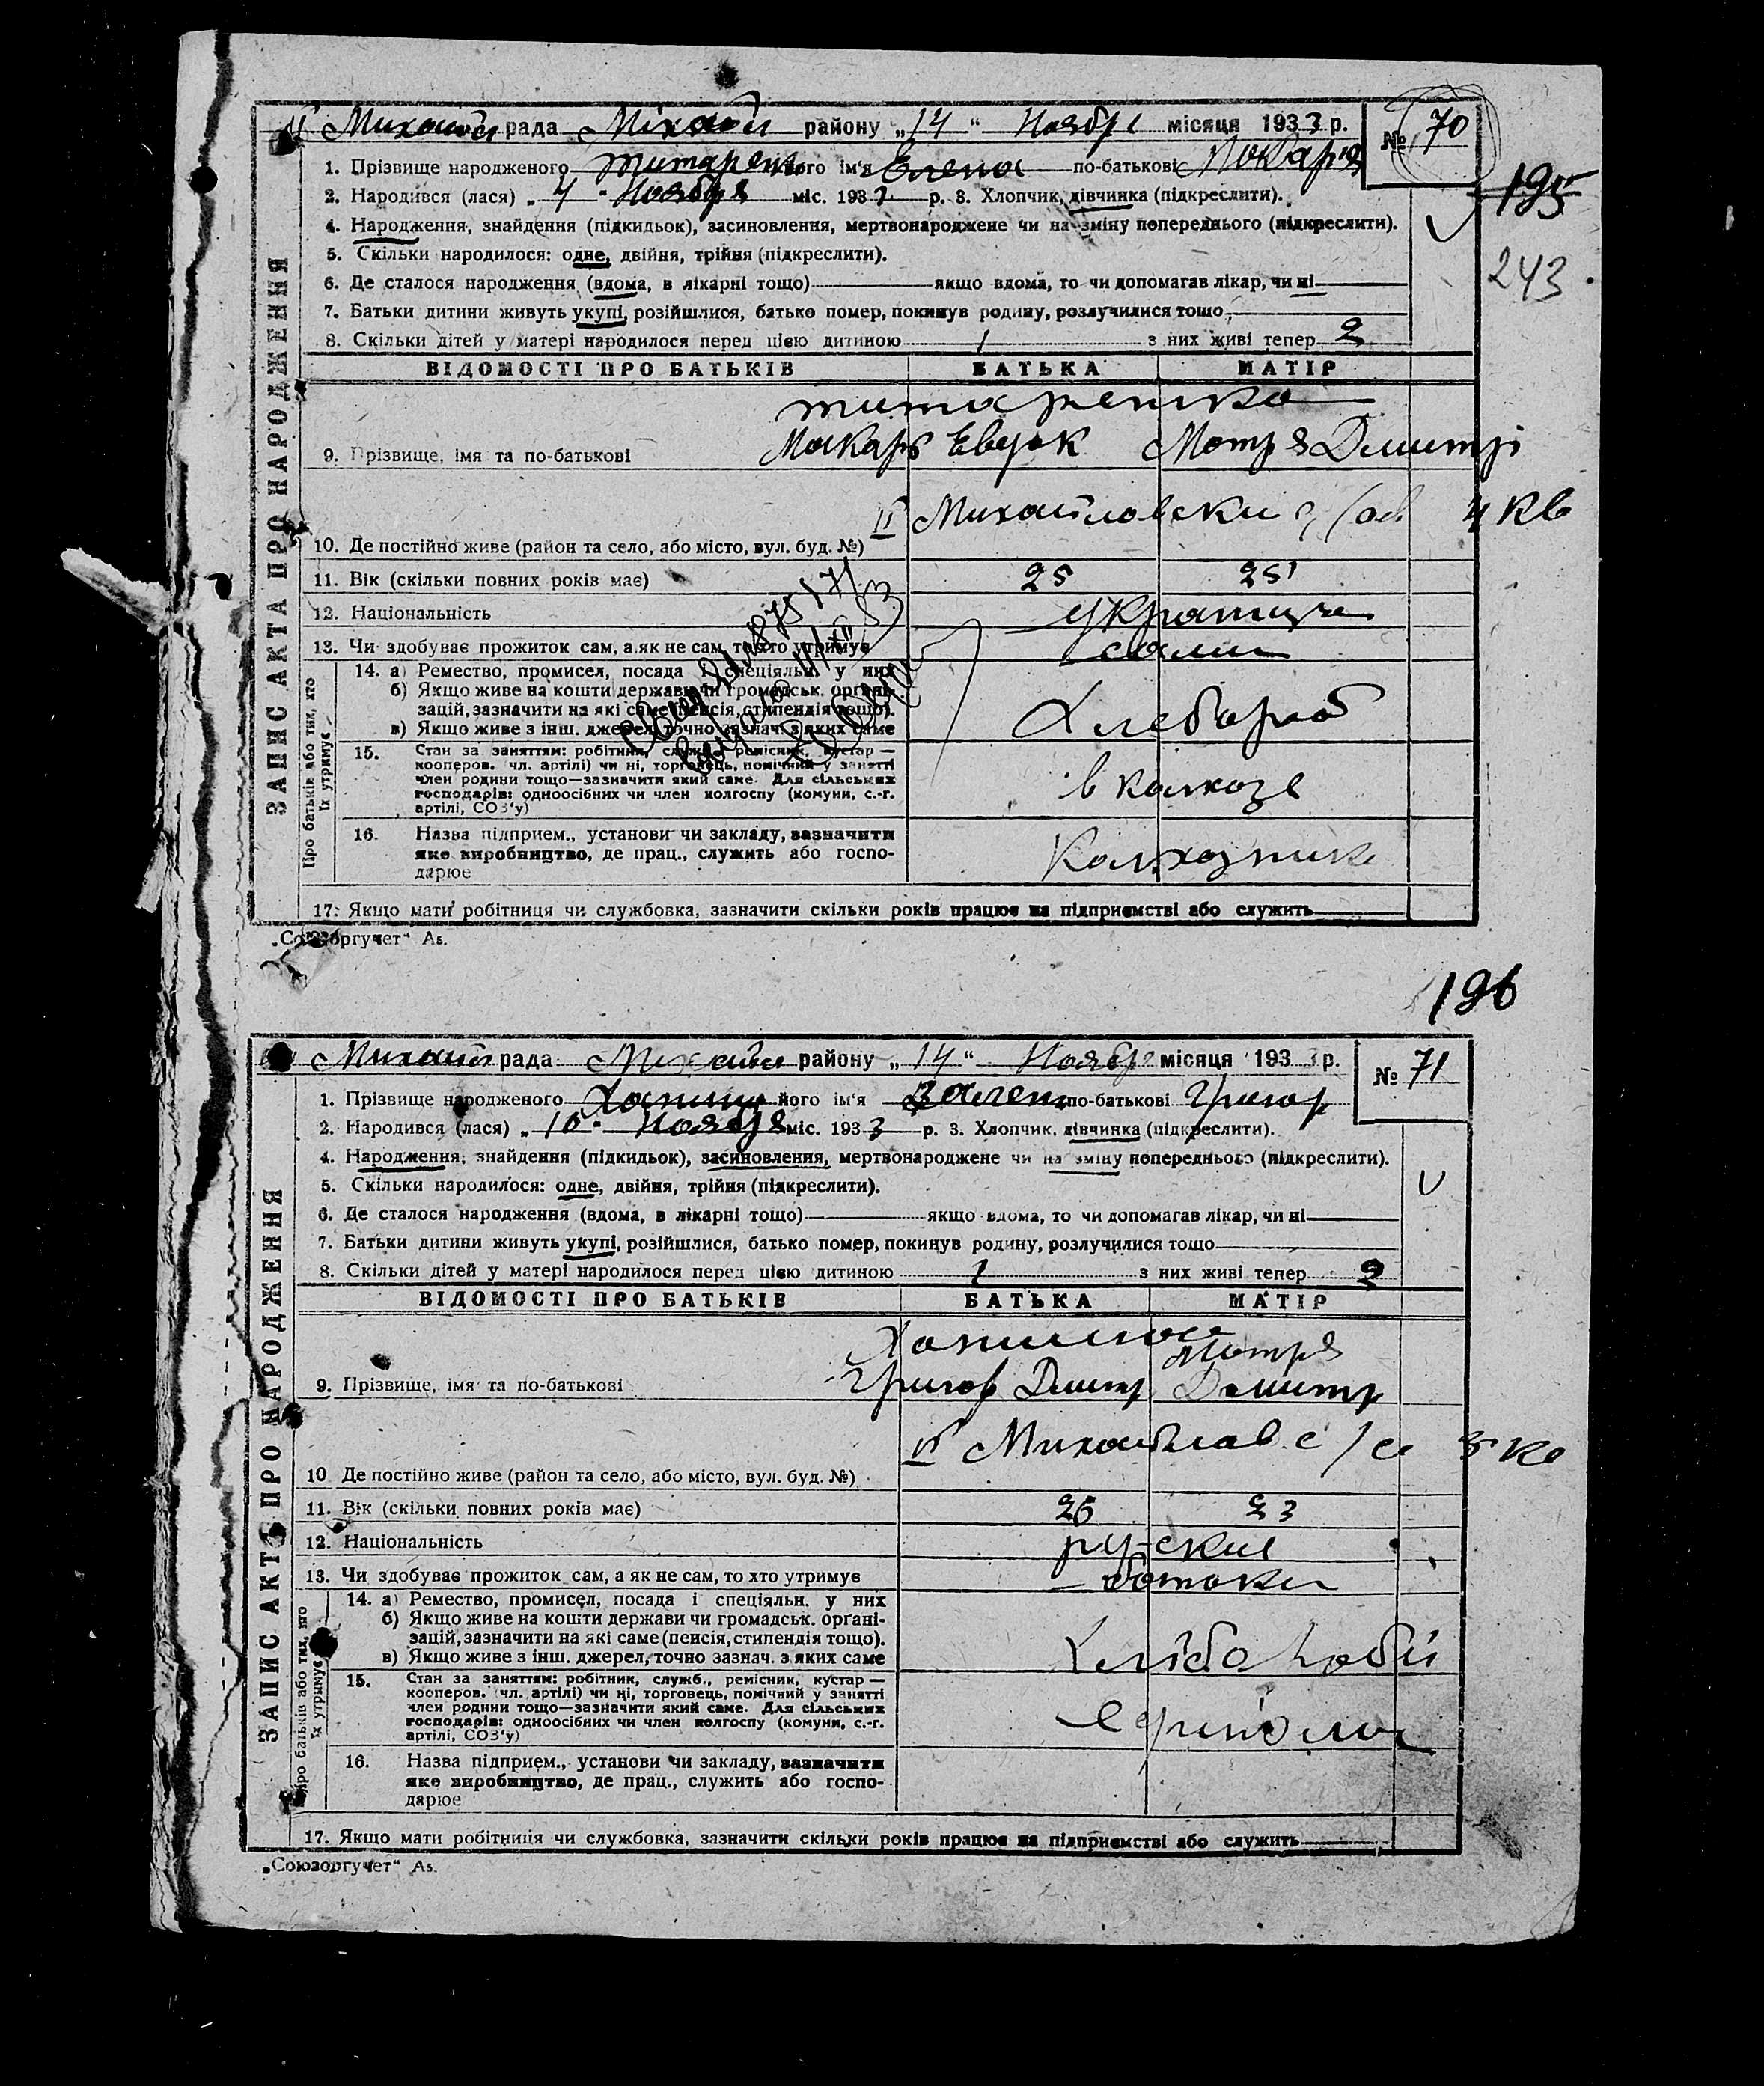 II Михайл рада Михайл району „14“ Ноября місяця 1933 р. № 70
1. Прізвище народженого Титарен його ім'я Елена по-батькові Макаров
195
2. Народився (лася) „4“ Ноября міс. 193 р. 3. Хлопчик, дівчинка (підкреслити).
4. Народження, знайдення (підкидьок), засиновлення, мертвонароджене чи на зміну попереднього (підкреслити).
5. Скільки народилося: одне, двійня, трійня (підкреслити).
243
6. Де сталося народження (вдома, в лікарні тощо) якщо вдома, то чи допомагав лікар, чи ні
7. Батьки дитини живуть укупі, розійшлися, батько помер, покинув родину, розлучилися тощо
8. Скільки дітей у матері народилося перед цією дитиною 1 з них живі тепер 2
ВІДОМОСТІ ПРО БАТЬКІВ БАТЬКА МАТІР
ЗАПИС АКТА ПРО НАРОДЖЕННЯ
Титаренко
9. Прізвище, імя та по-батькові Макар Мотря Дмитрі
II Михайловски 4 кв
10. Де постійно живе (район та село, або місто, вул. буд. №)
11. Вік (скільки повних років має) 25 25
12. Національність Украинце
13. Чи здобуває прожиток сам, а як не сам, то хто утримує сами
Про батьків або тих, хто їх утримує
14. а) Ремество, промисел, посада і спеціяльн. у них
б) Якщо живе на кошти держави чи громадськ. орґані-
зацій, зазначити на які саме (пенсія, стипендія тощо).
в) Якщо живе з інш. джерел, точно зазнач. з яких саме
Хлебороб
15. Стан за заняттям: робітник, служб., ремісник, кустар —
кооперов. чл. артілі) чи ні, торговець, помічний у занятті
член родини тощо—зазначити який саме. Для сільських
господарів: одноосібних чи член колгоспу (комуни, с.-г.
артілі, СОЗ'у)
в колхозе
16. Назва підприєм., установи чи закладу, зазначити
яке виробництво, де прац., служить або госпо-
дарює
Колхозник
17. Якщо мати робітниця чи службовка, зазначити скільки років працює на підприємстві або служить
„Союзоргучет“ А5.
196
Михайл рада Михайл району „14“ Ноября місяця 1933 р. № 71
1. Прізвище народженого його ім'я по-батькові Григор
2. Народився (лася) „10“ Ноября міс. 1933 р. 3. Хлопчик, дівчинка (підкреслити).
4. Народження, знайдення (підкидьок), засиновлення, мертвонароджене чи на зміну попереднього (підкреслити).
5. Скільки народилося: одне, двійня, трійня (підкреслити).
6. Де сталося народження (вдома, в лікарні тощо) якщо вдома, то чи допомагав лікар, чи ні
7. Батьки дитини живуть укупі, розійшлися, батько помер, покинув родину, розлучилися тощо
8. Скільки дітей у матері народилося перед цією дитиною 1 з них живі тепер 2
ВІДОМОСТІ ПРО БАТЬКІВ БАТЬКА МАТІР
ЗАПИС АКТА ПРО НАРОДЖЕННЯ
Мотря
9. Прізвище, імя та по-батькові Григор Дмитр Дмитр
II Михайлов с/с 3 кв
10. Де постійно живе (район та село, або місто, вул. буд. №)
11. Вік (скільки повних років має) 25 23
12. Національність руские
13. Чи здобуває прожиток сам, а як не сам, то хто утримує батьки
Про батьків або тих, хто їх утримує
14. а) Ремество, промисел, посада і спеціяльн. у них
б) Якщо живе на кошти держави чи громадськ. орґані-
зацій, зазначити на які саме (пенсія, стипендія тощо).
в) Якщо живе з інш. джерел, точно зазнач. з яких саме
15. Стан за заняттям: робітник, служб., ремісник, кустар —
кооперов. (чл. артілі) чи ні, торговець, помічний у занятті
член родини тощо—зазначити який саме. Для сільських
господарів: одноосібних чи член колгоспу (комуни, с.-г.
артілі, СОЗ'у)
16. Назва підприєм., установи чи закладу, зазначити
яке виробництво, де прац., служить або госпо-
дарює
17. Якщо мати робітниця чи службовка, зазначити скільки років працює на підприємстві або служить
„Союзоргучет“ А5.